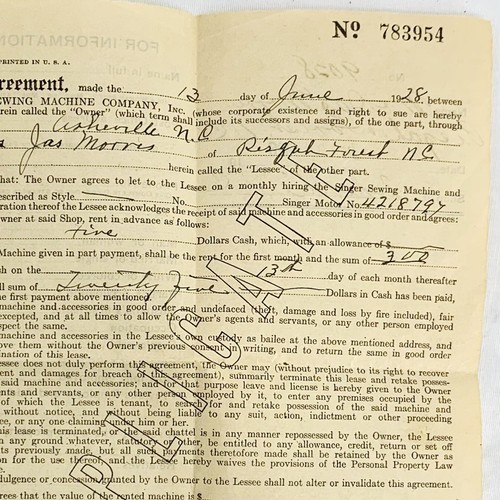 FOR INFORMATION
Nº 783954
PRINTED IN U. S. A.
greement, made the 13 day of June 1928, between
SEWING MACHINE COMPANY, Inc. (whose corporate existence and right to sue are hereby
herein called the "Owner" (which term shall include its successors and assigns), of the one part, through
Asheville N.C
Jas Morris of Pisgah Forest NC
herein called the "Lessee" of the other part.
that: The Owner agrees to let to the Lessee on a monthly hiring the Singer Sewing Machine and
described as Style No. Singer Motor No. 4218797
ration thereof the Lessee acknowledges the receipt of said machine and accessories in good order and agrees:
Owner at said Shop, rent in advance as follows:
Five Dollars Cash, which, with an allowance of $
Machine given in part payment, shall be rent for the first month and the sum of 3 00
sh on the 13th day of each month thereafter
ll sum of Twenty Five Dollars in Cash has been paid,
he first payment above mentioned.
machine and accessories in good order and undefaced (theft, damage and loss by fire included), fair
excepted, and at all times to allow the Owner's agents and servants, or any other person employed
spect the same.
machine and accessories in the Lessee's own custody as bailee at the above mentioned address, and
ove them without the Owner's previous consent in writing, and to return the same in good order
ination of this lease.
essee does not duly perform this agreement, the Owner may (without prejudice to its right to recover
ent and damages for breach of this agreement), summarily terminate this lease and retake posses-
said machine and accessories; and for that purpose leave and license is hereby given to the Owner
ents and servants, or any other person employed by it, to enter any premises occupied by the
of which the Lessee is tenant, to search for and retake possession of the said machine and
without notice, and without being liable to any suit, action, indictment or other proceeding
er, or any one claiming under him or her.
this lease is terminated, or the said chattel is in any manner repossessed by the Owner, the Lessee
n any ground whatever, statutory or other, be entitled to any allowance, credit, return or set off
nts previously made, but all such payments theretofore made shall be retained by the Owner as
on for the use thereof, and the Lessee hereby waives the provisions of the Personal Property Law
e.
ndulgence or concession granted by the Owner to the Lessee shall not alter or invalidate this agreement.
rees that the value of the rented machine is $